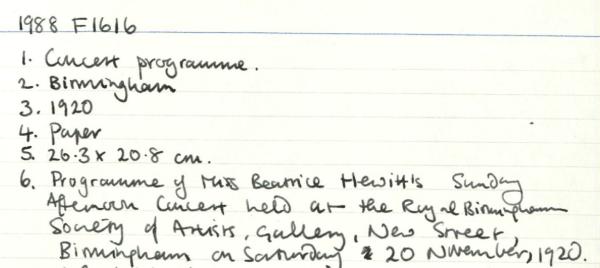 1988 F1616
1. Concert programme.
2. Birmingham
3. 1920
4. Paper
5. 26.3 x 20.8 cm.
6. Programme of Miss Beatrice Hewitt's Sunday
Afternoon Concert held at the Royal Birmingham
Society of Artists, Gallery, New Street,
Birmingham on Saturday 20 November, 1920.